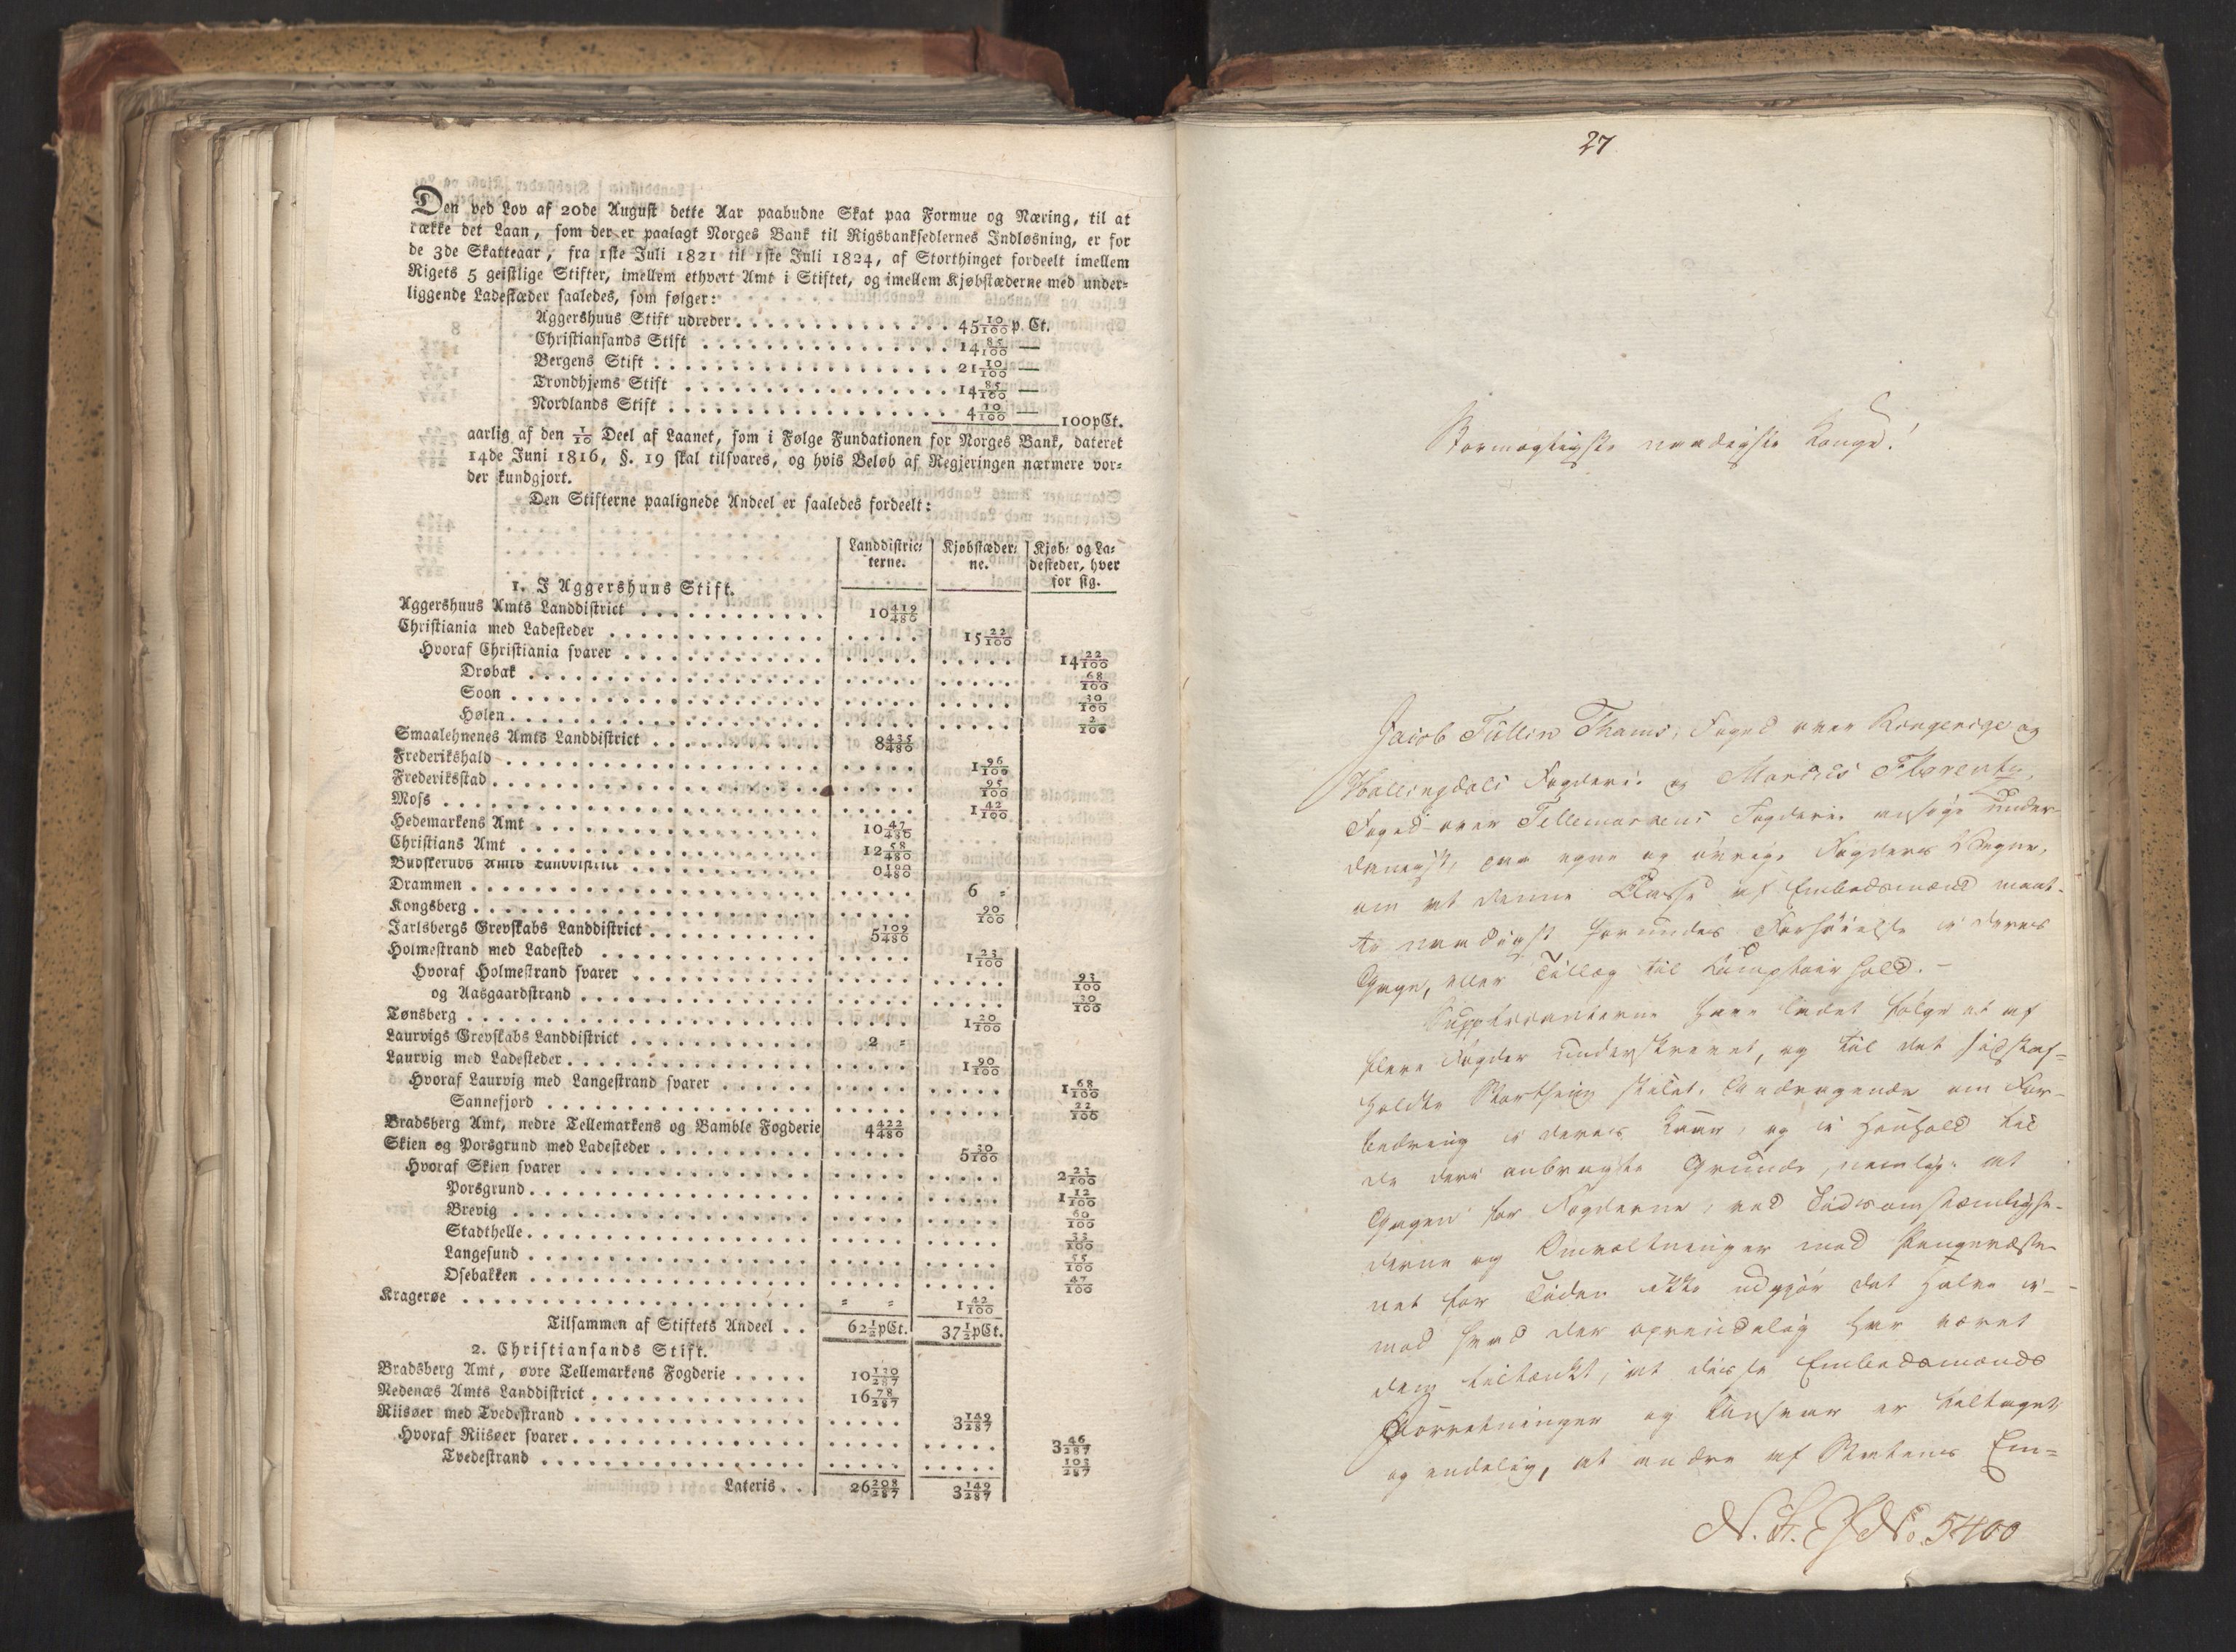 Den ved Lov af 20de August dette Aar paabudne Skat paa Formue og Næring, til at
række det Laan, som der er paalagt Norges Bank til Rigsbanksedlernes Indløsning, er for
de 3de Skatteaar, fra 1ste Juli 1821 til 1ste Juli 1824, af Storthinget fordeelt imellem
Rigets 5 geistlige Stifter, imellem ethvert Amt i Stiftet, og imellem Kjøbstæderne med under-
liggende Ladestæder saaledes, som følger:
Aggershuus Stift udreder . . . 45 10/100 p. Ct.
Christiansands Stift . . . 14 85/100 —
Bergens Stift . . . 21 10/100 —
Trondhjems Stift . . . 14 85/100 —
Nordlands Stift . . . 4 10/100 —
100 pCt.
aarlig af den 1/10 Deel af Laanet, som i Følge Fundationen for Norges Bank, dateret
14de Juni 1816, §. 19 skal tilsvares, og hvis Beløb af Regjeringen nærmere vor-
der kundgjort.
Den Stifterne paalignede Andeel er saaledes fordeelt:
Landdistric- Kjøbstæder- Kjøb- og La-
terne. ne. desteder, hver
for sig.
1. I Aggershuus Stift.
Aggershuus Amts Landdistrict . . . 10 419/480
Christiania med Ladesteder . . . 15 22/100
Hvoraf Christiania svarer . . . 14 22/100
Drøbak . . . 68/100
Soon . . . 30/100
Hølen . . . 2/100
Smaalehnenes Amts Landdistrict . . . 8 435/480
Frederikshald . . . 1 96/100
Frederiksstad . . . 95/100
Moss . . . 1 42/100
Hedemarkens Amt . . . 10 47/480
Christians Amt . . . 12 58/480
Budskeruds Amts Landdistrict . . .
Drammen . . . 6 =
Kongsberg . . . 90/100
Jarlsbergs Grevskabs Landdistrict . . . 5 109/480
Holmestrand med Ladested . . . 1 23/100
Hvoraf Holmestrand svarer . . . 93/100
og Aasgaardstrand . . . 30/100
Tønsberg . . . 1 20/100
Laurvigs Grevskabs Landdistrict . . . 2 =
Laurvig med Ladesteder . . . 1 90/100
Hvoraf Laurvig med Langestrand svarer . . . 1 68/100
Sannefjord . . . 22/100
Bradsberg Amt, nedre Tellemarkens og Bamble Fogderie 4 422/480
Skien og Porsgrund med Ladesteder . . . 5 30/100
Hvoraf Skien svarer . . . 2 23/100
Porsgrund . . . 1 12/100
Brevig . . . 60/100
Stadthelle . . . 33/100
Langesund . . . 55/100
Osebakken . . . 47/100
Kragerøe . . . = = 1 42/100
Tilsammen af Stiftets Andeel . . 62 1/2 pCt. 37 1/2 pCt.
2. Christiansands Stift.
Bradsberg Amt, øvre Tellemarkens Fogderie . . . 10 130/287
Nedenæs Amts Landdistrict . . . 16 78/287
Riisøer med Tvedestrand . . . 3 149/287
Hvoraf Riisøer svarer . . . 3 46/287
Tvedestrand . . . 103/287
Lateris . . 26 208/287 3 149/287
27
Stormægtigste naadigste Konge!
Jacob Tullin Thams, Foged over Ringerige og
Hallingdals Fogderi og Mandus Florentz,
Foged over Tellemarkens Fogderi ansøge under-
danigst, paa egne og øvrige Fogders Vegne,
om at denne Classe af Embedsmænd maat-
te naadigst forundes Forhøielse i deres
Gage, eller Tillæg til Kumptoir hold. –
Supplicanterne have ladet følge et af
flere Fogder underskrevet, og til det sidstaf-
holdte Storthing stilet, Andragende om For-
bedring i deres Kaar, og i Henhold til
de deri anbragte Grunde, nemlig: at
Gagen for Fogderne, ved Tidsomstændighe-
derne og Omvæltninger med Pengevæse-
net for Tiden ikke udgjør det halve i-
mod hvad der oprindelig har været
dem tiltænkt, at disse Embedsmænds
Forretninger og Ansvar er tiltaget
og endelig, at andre af Statens Em-
No. 5400